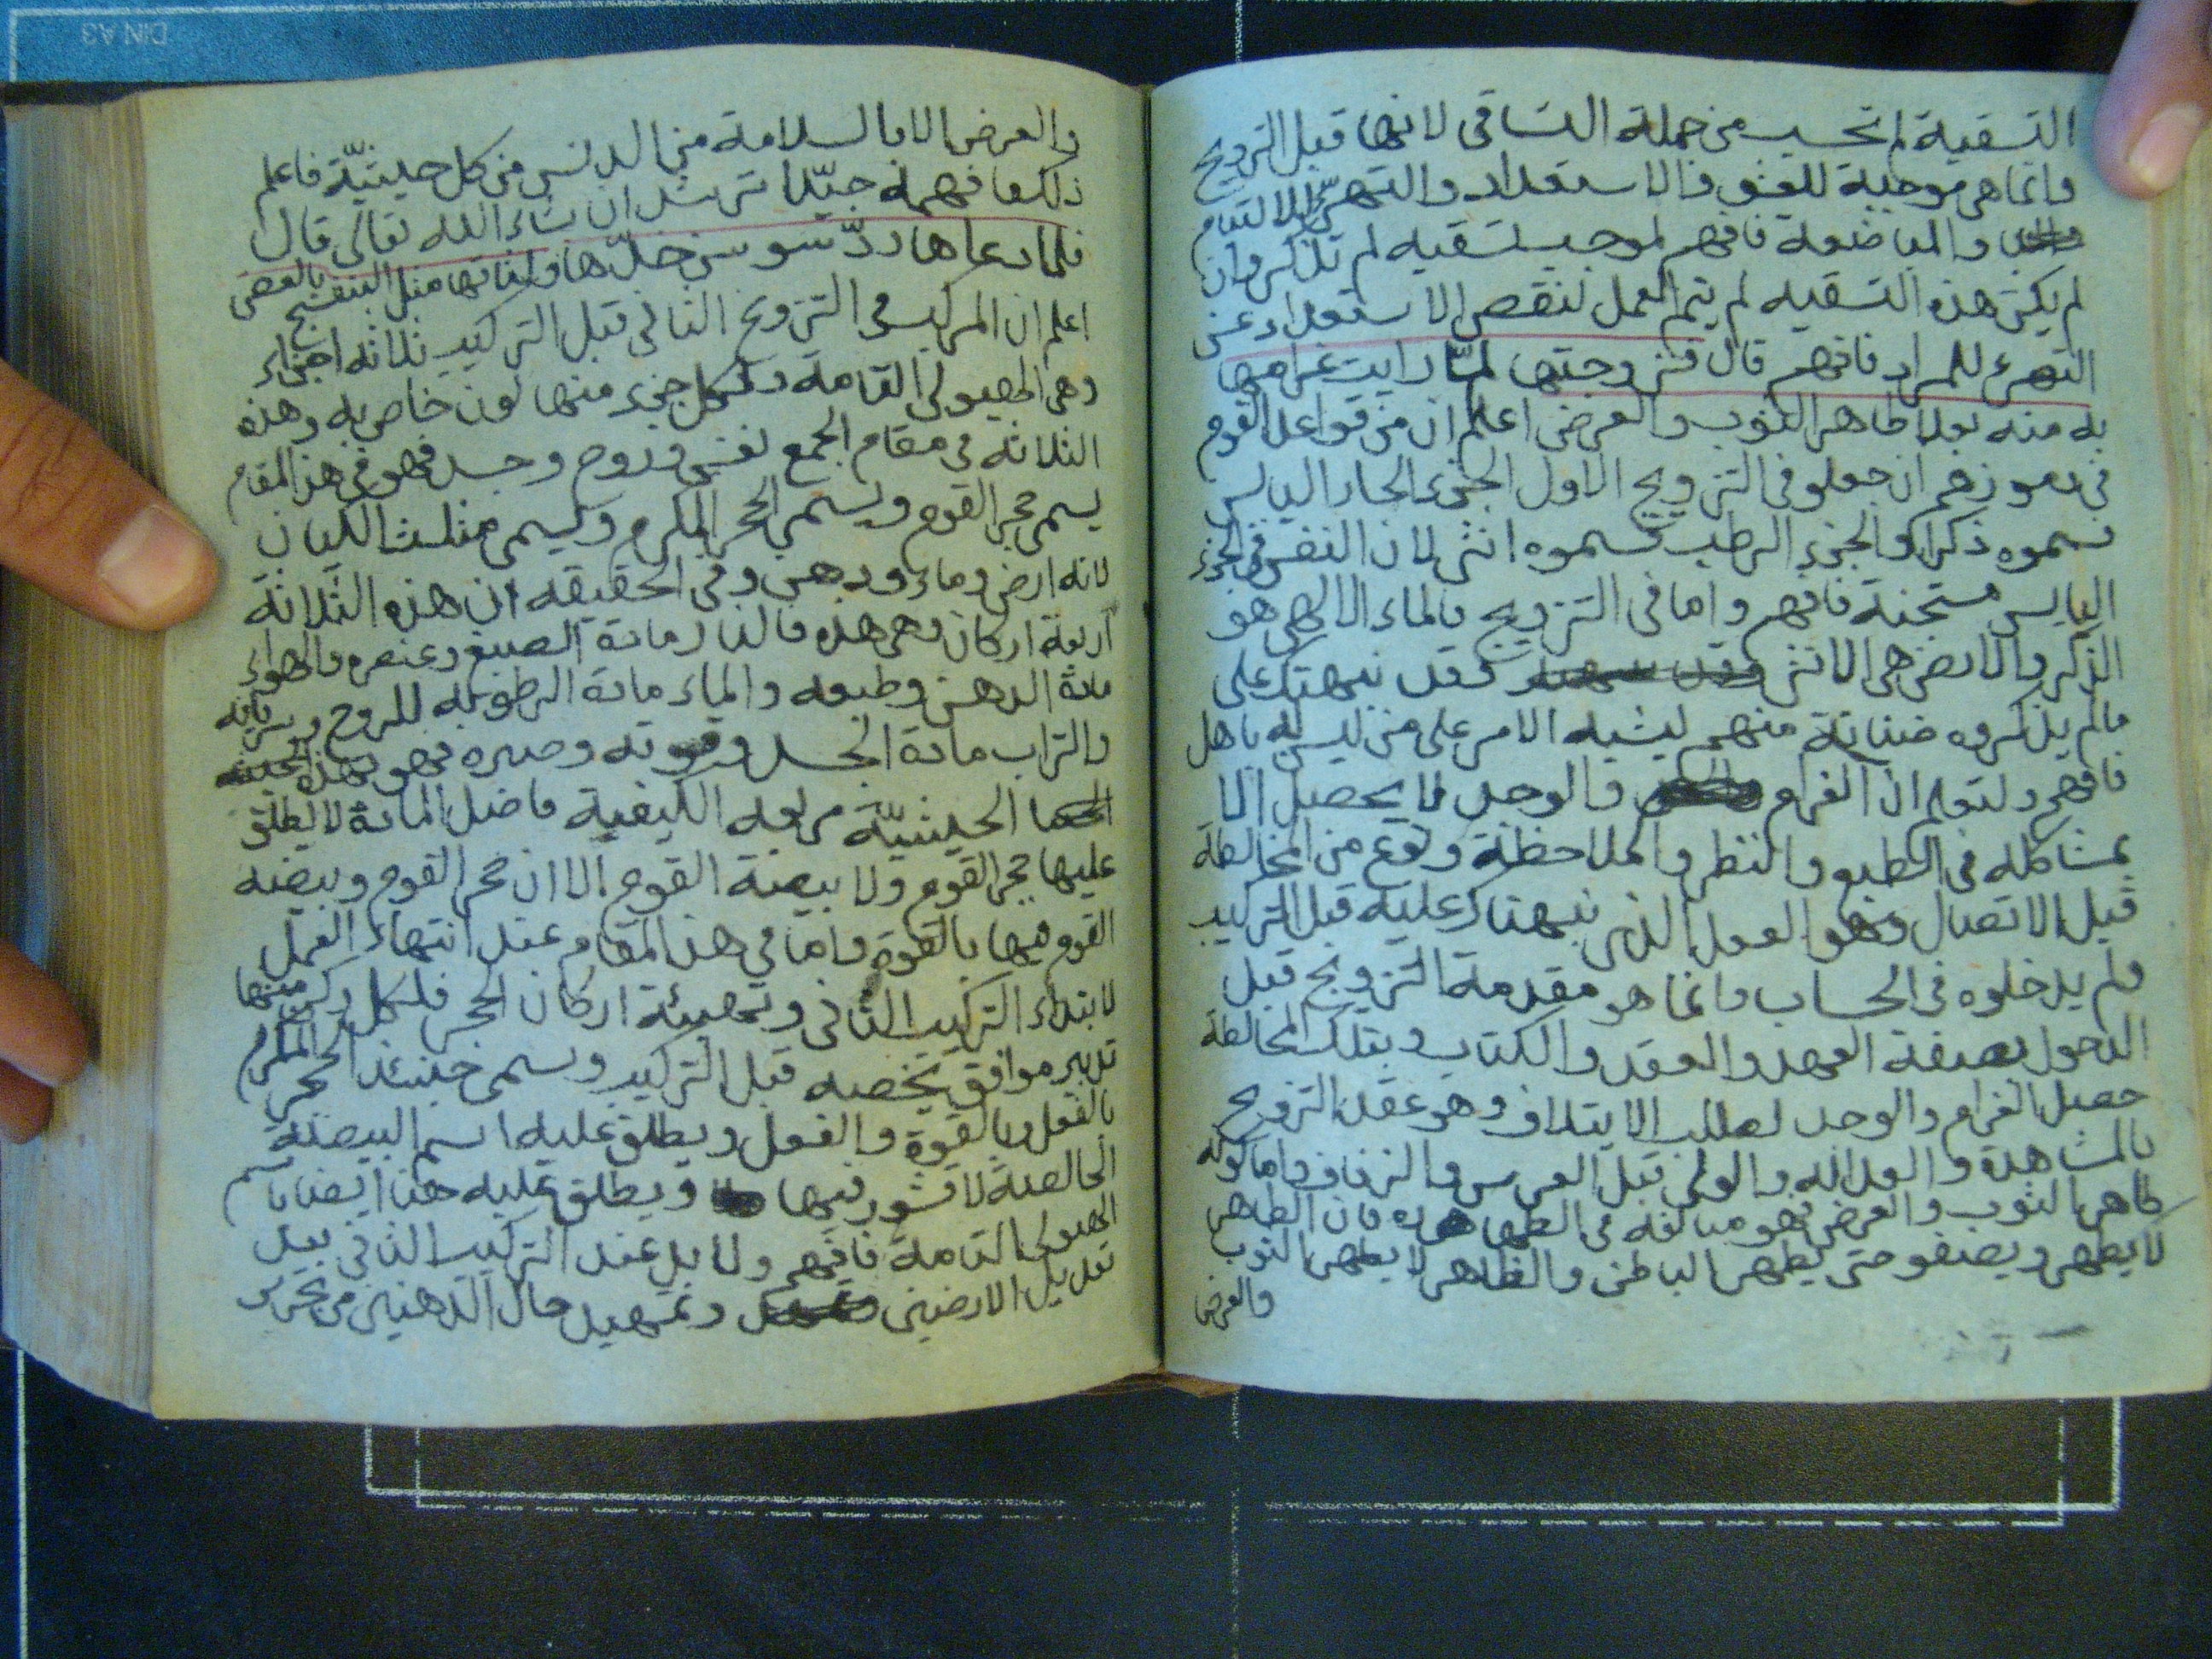 التسقية لم تحسب من جملة التساقى لانها قبل التزويج
وانما هى موجبة للعشق والاستعداد والتهيّؤ للالتئام
والمباضعة فافهم لموجب لتسقيه لم تذكر وان
لم يكن هذه التسقيه لم يتم العمل لنقص الاستعداد عن
التهىء للمراد فافهم قال فتزوجتها لمّا رايت غرامها
به منه بعلا طاهر الثوب والعرض اعلم ان من قواعد القوم
فى رموزهم ان جعلو فى التزويج الاول الجزء الحار اليابس
فسموه ذكرا والجزء الرطب فسموه انثى لان النفس فى الجزء
اليابس مستجنة فافهم واما فى التزويج فالماء الالهى هو
الذكر والارض هى الانثى فقد نبهتك على
مالم يذكروه ضنانة منهم ليشبه الامر على من ليس له باهل
فافهم ولتعلم ان الغرام والوجد لا يحصل الا
بمشاكله فى الطبع والنظر والملاحظة ونوع من المخالطة
قبل الاتصال وهو العمل الذى نبهناك عليه قبل التركيب
ولم يدخلوه فى الحساب وانما هو مقدمة التزويج قبل
الدخول بصفة العهد والعقد والكتاب وبتلك المخالطة
حصيل الغرام والوجد لطلب الايتلاف وهو عقد التزويج
بالمشاهدة والعدالله والولى قبل العرس والزفاف واما كونه
طاهر الثوب والعرض فهو مبالغة فى الطهاره فان الطاهر
لا يطهر ويصفو حتى يطهر الباطن والظاهر لا يطهر الثوب
والعرض
والعرض الا بالسلامة من الدنس من كل حيثيّة فاعلم
ذلك وافهمه جيّدا ترشد ان شاء الله تعالى قال
فلما دعاها ردّ سوسن خدّها ولباتها مثل البنفسج بالعض
اعلم ان المركب فى التزويج الثانى قبل التركيب ثلاثه اجزاء
وهى الهيولى التامة ولكل جزء منها لون خاص به وهذه
الثلاثه فى مقام الجمع نفس وروح وجسد فهو فى هذ المقام
يسمى حجر القوم ويسمى الحجر المكرم ويسمى مثلث الكيان
لانه ارض وماء ودهن وفى الحقيقه ان هذه الثلاثة
اربعة اركان وهى هذه فالنار مادة الصبغ وعنصره والهواء
مادة الدهن وطبعه والماء مادة الرطوبه للروح وسريانه
والتراب مادة الجسد وقوته وصبره فهو بهذه
الحيثيّة مربعه الكيفية فاضل المادة لا يطلق
عليها حجر القوم ولا بيضة القوم الا ان حجر القوم وبيضة
القوم فيها بالقوة واما فى هذ المقام عند انتهاء العمل
لابتداء التركيب الثانى وتهيئة اركان الحجر فلكل ركن منها
تدبير موافق يخصه قبل التركيب ويسمى حينئذ الحجر المكرم
بالفعل وبالقوة والفعل ويطلق عليه اسم البيضة
الخالصة لا قشور فيها ويطلق عليه هنا ايضا باسم
الهيولى التامة فافهم ولا بد عند التركيب الثانى بيد
تعديل الارضين وتمهيد حال الدهنين من بحر